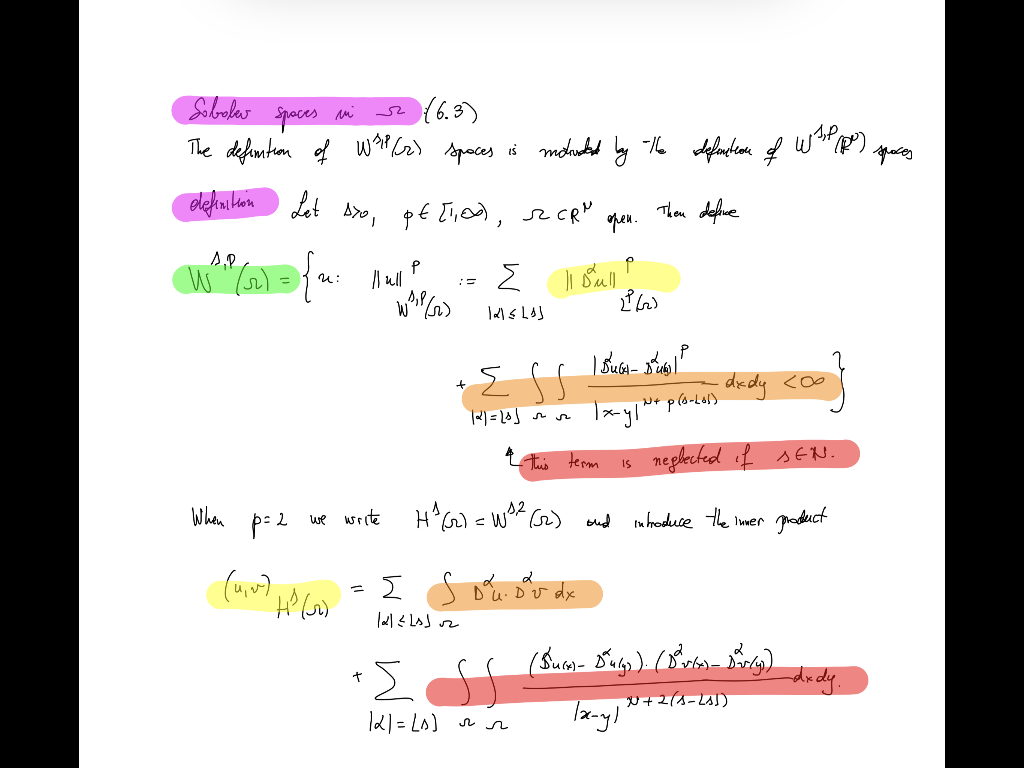 Sobolev spaces in Ω (6.3)
The definition of W^{s,p}(Ω) spaces is motivated by the definition of W^{s,p}(R^N) spaces
definition Let s>0, p∈[1,∞), Ω⊂R^N open. Then define
W^{s,p}(Ω) = { u: ||u||^p_{W^{s,p}(Ω)} := Σ_{|α|≤⌊s⌋} ||D^α u||^p_{L^p(Ω)}
+ Σ_{|α|=⌊s⌋} ∫_Ω ∫_Ω |D^α u(x) - D^α u(y)|^p / |x-y|^{N+p(s-⌊s⌋)} dxdy < ∞ }
this term is neglected if s∈N.
When p=2 we write H^s(Ω) = W^{s,2}(Ω) and introduce the inner product
(u,v)_{H^s(Ω)} = Σ_{|α|≤⌊s⌋} ∫_Ω D^α u · D^α v dx
+ Σ_{|α|=⌊s⌋} ∫_Ω ∫_Ω (D^α u(x) - D^α u(y)) · (D^α v(x) - D^α v(y)) / |x-y|^{N+2(s-⌊s⌋)} dxdy.